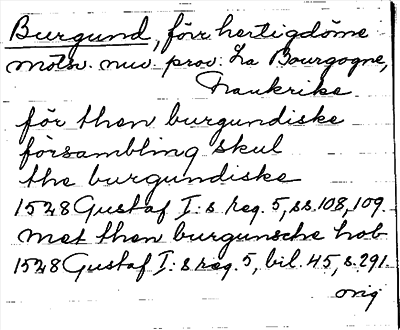 Burgund, förr hertigdöme
motsv. nuv. prov. La Bourgogne,
Frankrike.
för then burgundiske
försambling skul
the burgundiske
1528 Gustaf I:s reg. 5, ss. 108, 109.
met then burgunsche hob
1528 Gustaf I:s reg. 5, bil. 45, s. 291.
orig